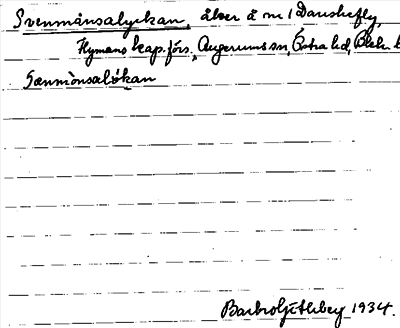 Svenmånsalyckan, åker å nr 1 Danskefly,
Hymans kap. förs., Augerums sn, Östra hd, Blek. l
Sænmònsalỳkan
Barbro Ljethberg 1934.